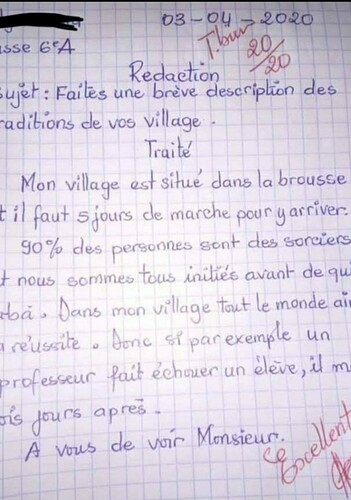 03-04-2020
sse 6eA
T. bien
20/20
Redaction
ujet : Faites une brève description des
raditions de vos village.
Traité
Mon village est situé dans la brousse
t il faut 5 jours de marche pour y arriver.
90% des personnes sont des sorciers
t nous sommes tous initiés avant de qui
Dans mon village tout le monde aim
a réussite. Donc si par exemple un
professeur fait échouer un élève, il m
ois jours après.
A vous de voir Monsieur.
Excellent